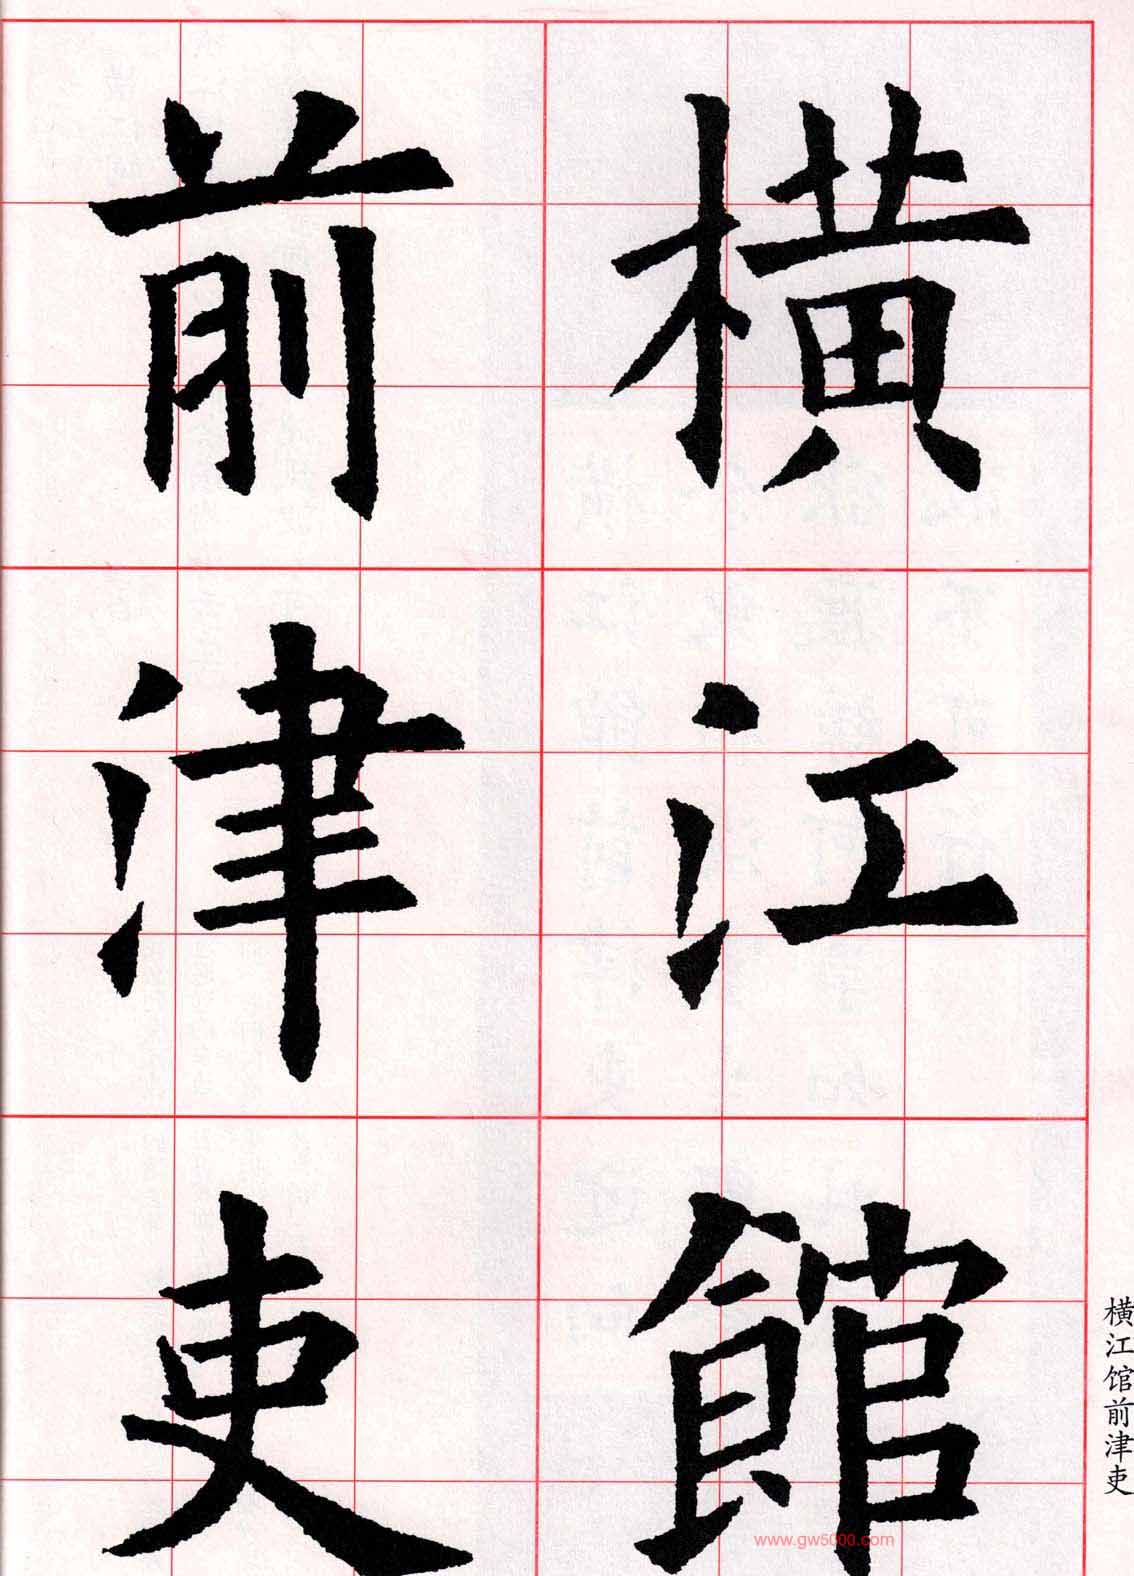 橫江館
前津吏
横江馆前津吏
www.gw5000.com